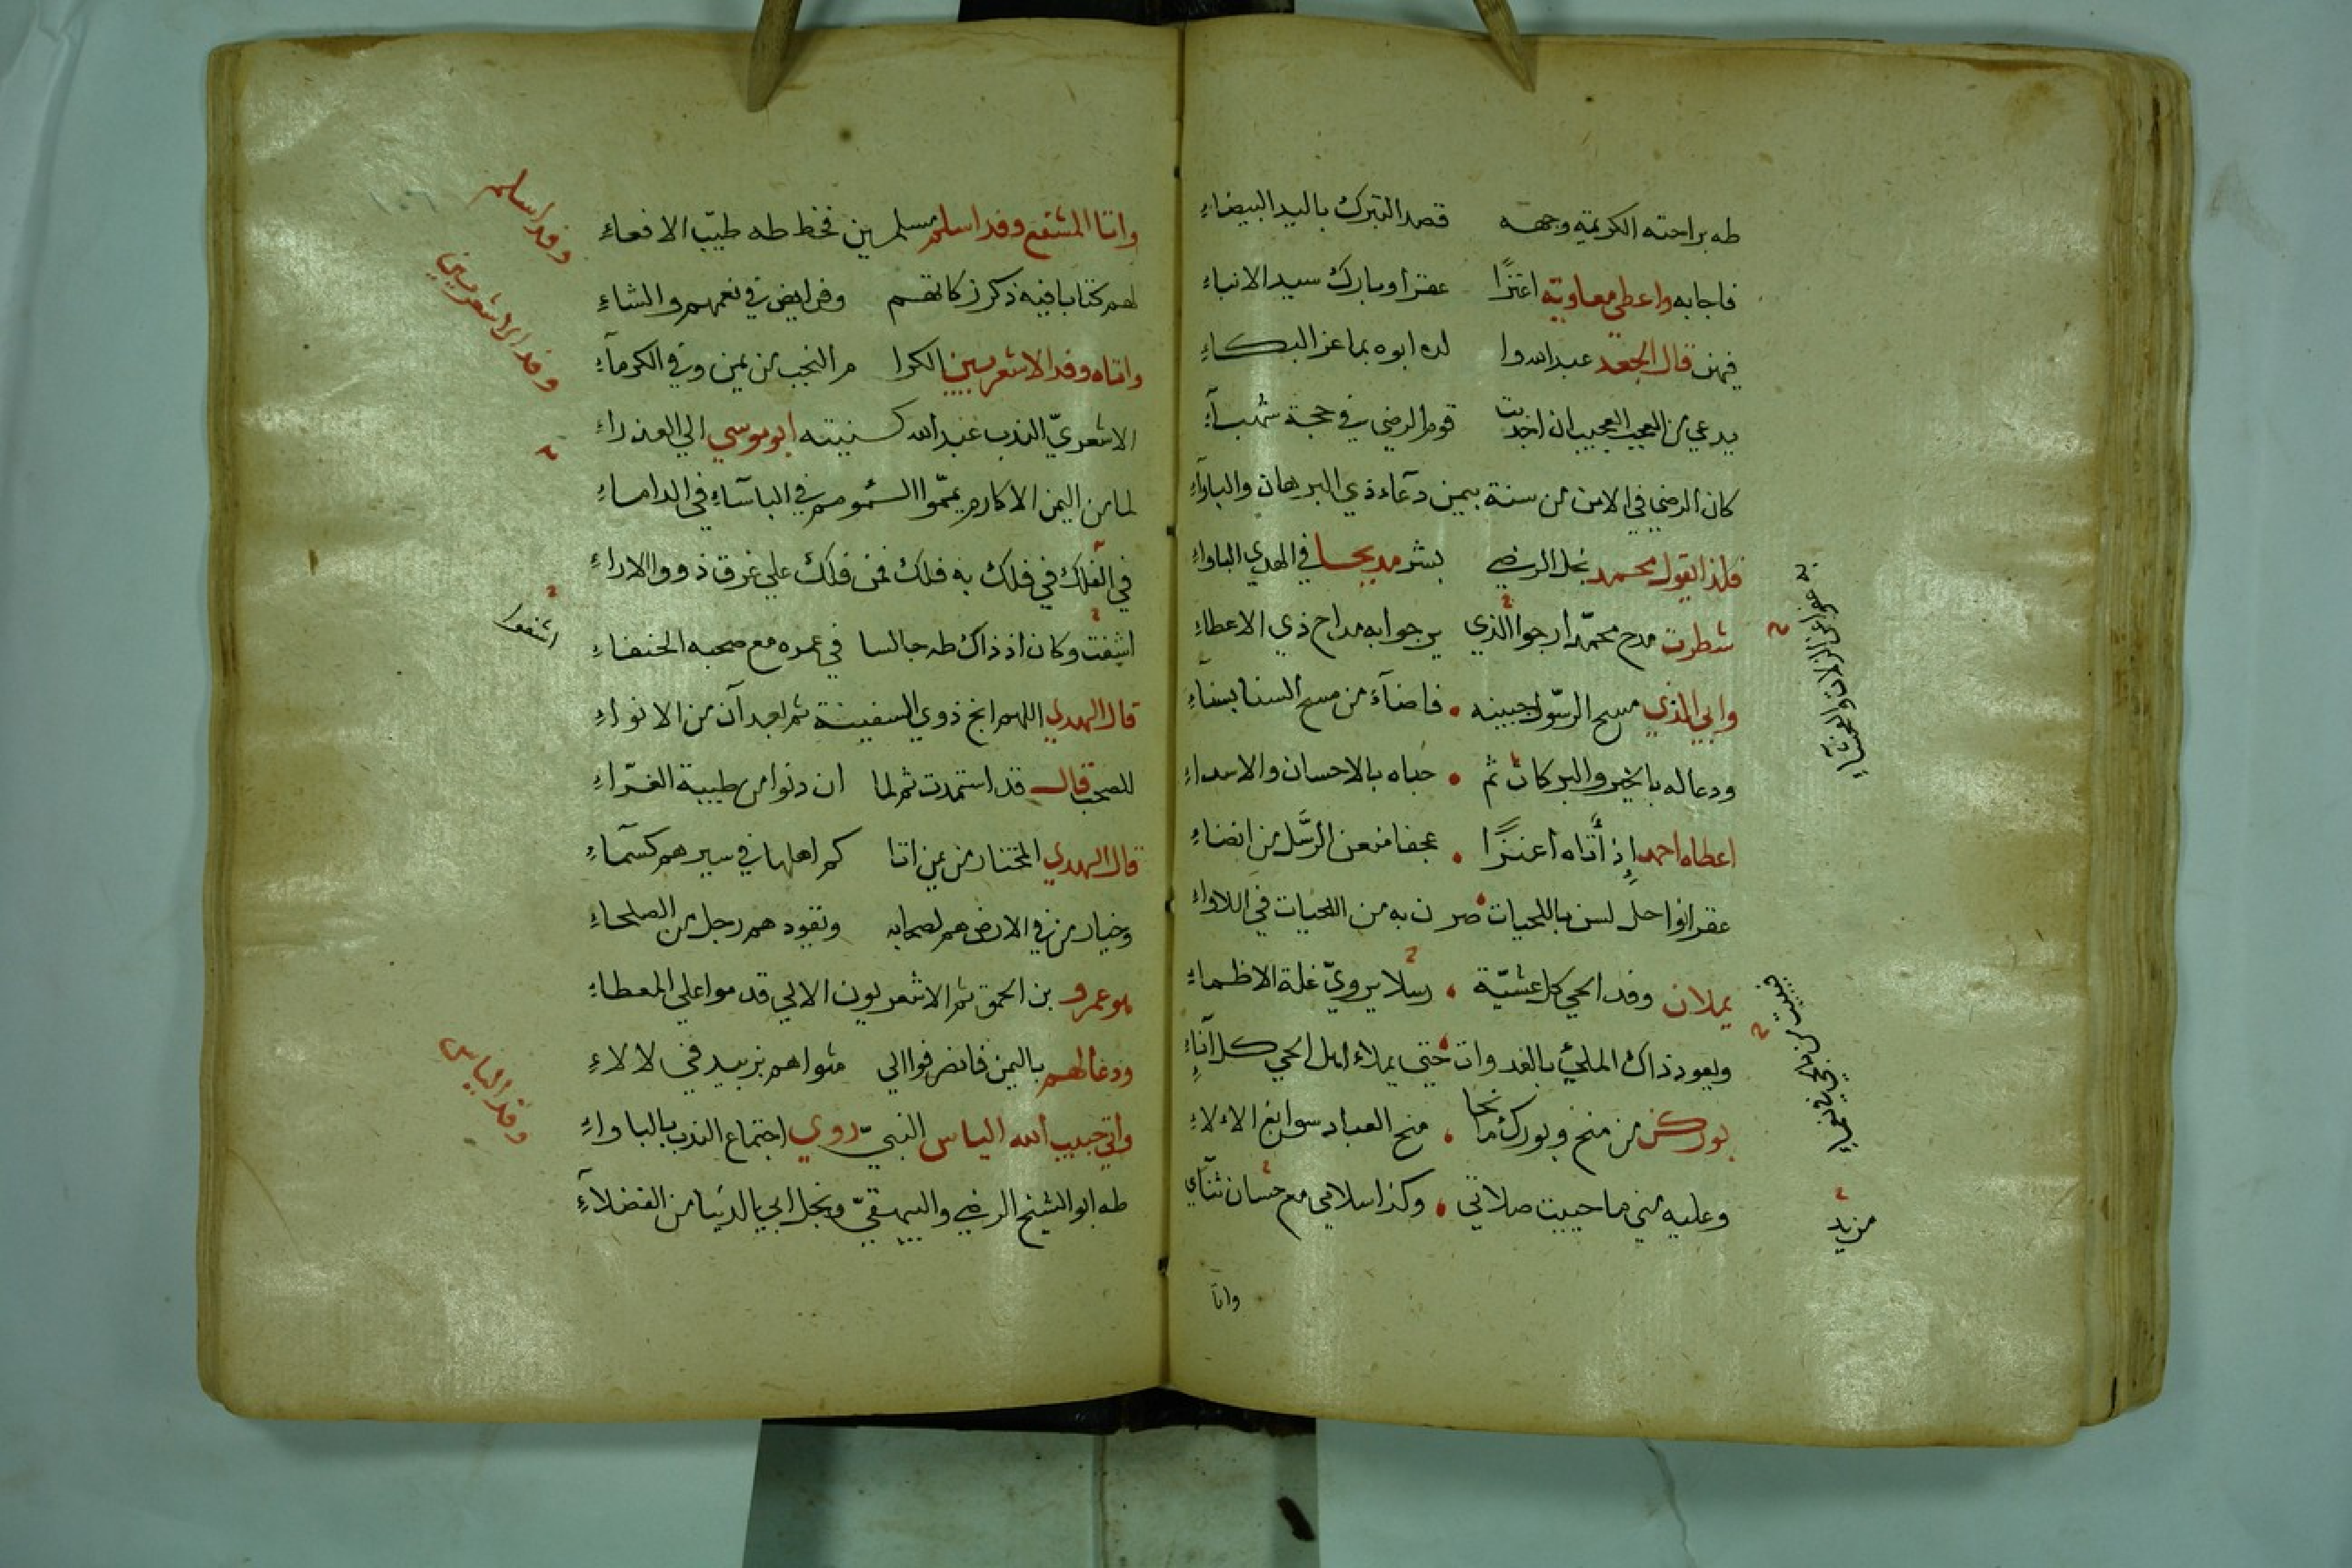 طه براحته الكريمة وجهه قصد التبرك باليد البيضاء
فاجابه واعطي معاوية اعنزًا عفرا وبارك سيد الانباء
فهن قال الجعد عبد الله وا لده ابوه بماعز البكاء
يدعي من العجب العجيب ان اجدبت قوم الرضي في حجة شهبآء
كان الرضي في الامن من سنة بيمن دعآء ذي البرهان والباوآء
فلذا يقول محمد نجل الرضي بشر مديحا في الهدي الباواء
شطرت مدح محمّد ارجوا الذي يرجوا به مداح ذي الاعطاء
وابي الذي مسح الرسول جبينه فاضآء من مسح السنا بسنآء
ودعا له بالخير والبركات ثم حباه بالاحسان والاسداء
اعطاه احمد إذ أتاه أعنزًا عجفا منعن الرسّل من انضاء
عفرا نواحل لسن باللحيات صرن به من اللحيات في اللاواء
يملان وفد الحي كل عشيّة رسلا يرويّ غلة الاظماء
ويعود ذاك الملئ بالغدوات حتي يملاء اهل الحي كل آناءِ
بوركن من منح وبورك مانحا منح العباد سوابغ الالاء
وعليه مني ما حييت صلاتي وكذا سلامي مع حسان ثنآي
مزيد
وانا
واتا المشفع وفد اسلم مسلمين فخط طه طيّب الافعاء
لهم كتابا فيه ذكر زكاتهم وفرايض في نعمهم والشاء
واتاه وفد الاشعريين الكرا م النجب من يمن وفي الكرمآء
الاشعريّ الندب عبد الله كنيته ابو موسي الي العذراء
لما من اليمن الاكارم يمّموا السموم في الباسآء في الداماء
في الفلك في فلك به فلك فمن فلك علي غرق ذووا الاراء
اشفت وكان اذ ذاك طه جالسا في عمره مع صحبه الحنفاء
قال الهدي اللهم انج ذوي السفينة ثم بعد آن من الانواء
للصحب قال قد استمدت ثم لما ان دنوا من طيبة الغرّاء
قال الهدي المختار من من اتا كم اهلها في سيرهم كسمآء
وخيار من في الارض هم لصحابه وتقودهم رجل من الصلحاء
هو عمرو بن الحمق ثم الاشعريون الالي قدموا علي المعطاء
ودعا لهم باليمن فانصرفوا الي مثواهم بزبيد في لالاء
واتي حبيب الله الياس النبيّ روي اجتماع الندب بالباواء
طه ابو الشيخ الرضي والبيهقيّ ونجل ابي الدنيا من الفضلآء
وفد اسلم
وفد الاشعريين
اشفوا
وفد الياس